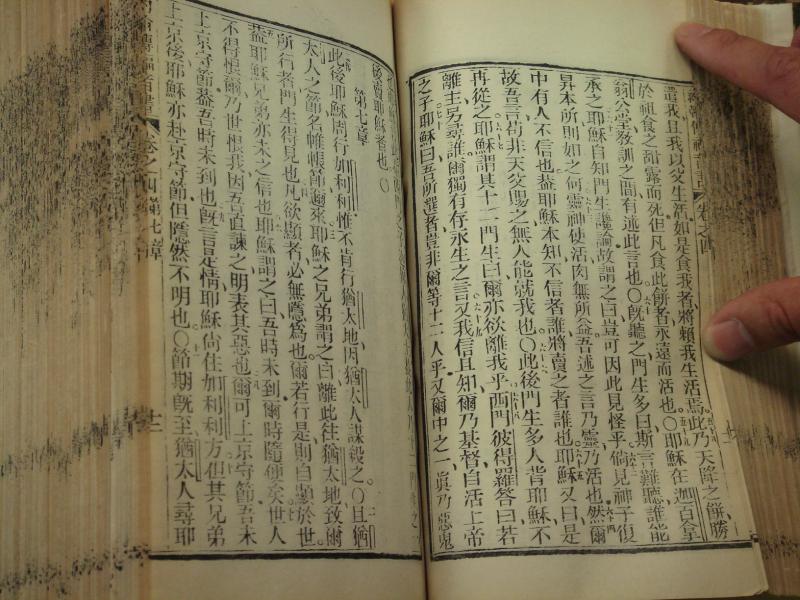 遣我且我以父生活如是食我者將賴我生活焉此乃天降之餅勝
於祖食之甜露而死但凡食此餅者永遠而活也○耶穌在迦百拿
翁公堂敎訓之間有述此言也○旣聽之門生多曰斯言難聽誰能
承之耶穌自知門生譏論故謂之曰豈可因此見怪乎倘見神子復
昇本所則如之何靈神使活肉無所益吾述之言乃靈乃活也然爾
中有人不信也蓋耶穌本知不信者誰將賣之者誰也耶穌又曰是
故吾言苟非天父賜之無人能就我也○此後門生多人背耶穌不
再從之耶穌謂其十二門生曰爾亦欲離我乎西門彼得羅答曰若
離主另尋誰爾獨有存永生之言又我信且知爾乃基督自活上帝
之子耶穌曰吾所選者豈非爾等十二人乎又爾中之一眞乃惡鬼
賣耶穌者也○
第七章
此後耶穌周行加利利惟不肯行猶太地因猶太人謀殺之○且猶
太人之節名帷帳節邇來耶穌之兄弟謂之曰離此往猶太地致爾
所行者門生得見也凡欲顯者必無隱爲也爾若行是則自顯於世
蓋耶穌兄弟亦未之信也耶穌謂之曰吾時未到爾時隨便矣世人
不得恨爾乃世恨我因吾直諫之明表其惡也爾可上京守節吾未
上京守節蓋吾時未到也旣言是情耶穌尙住加利利方但其兄弟
上京後耶穌亦赴京守節但隱然不明也○節期旣至猶太人尋耶
卷之四第七章